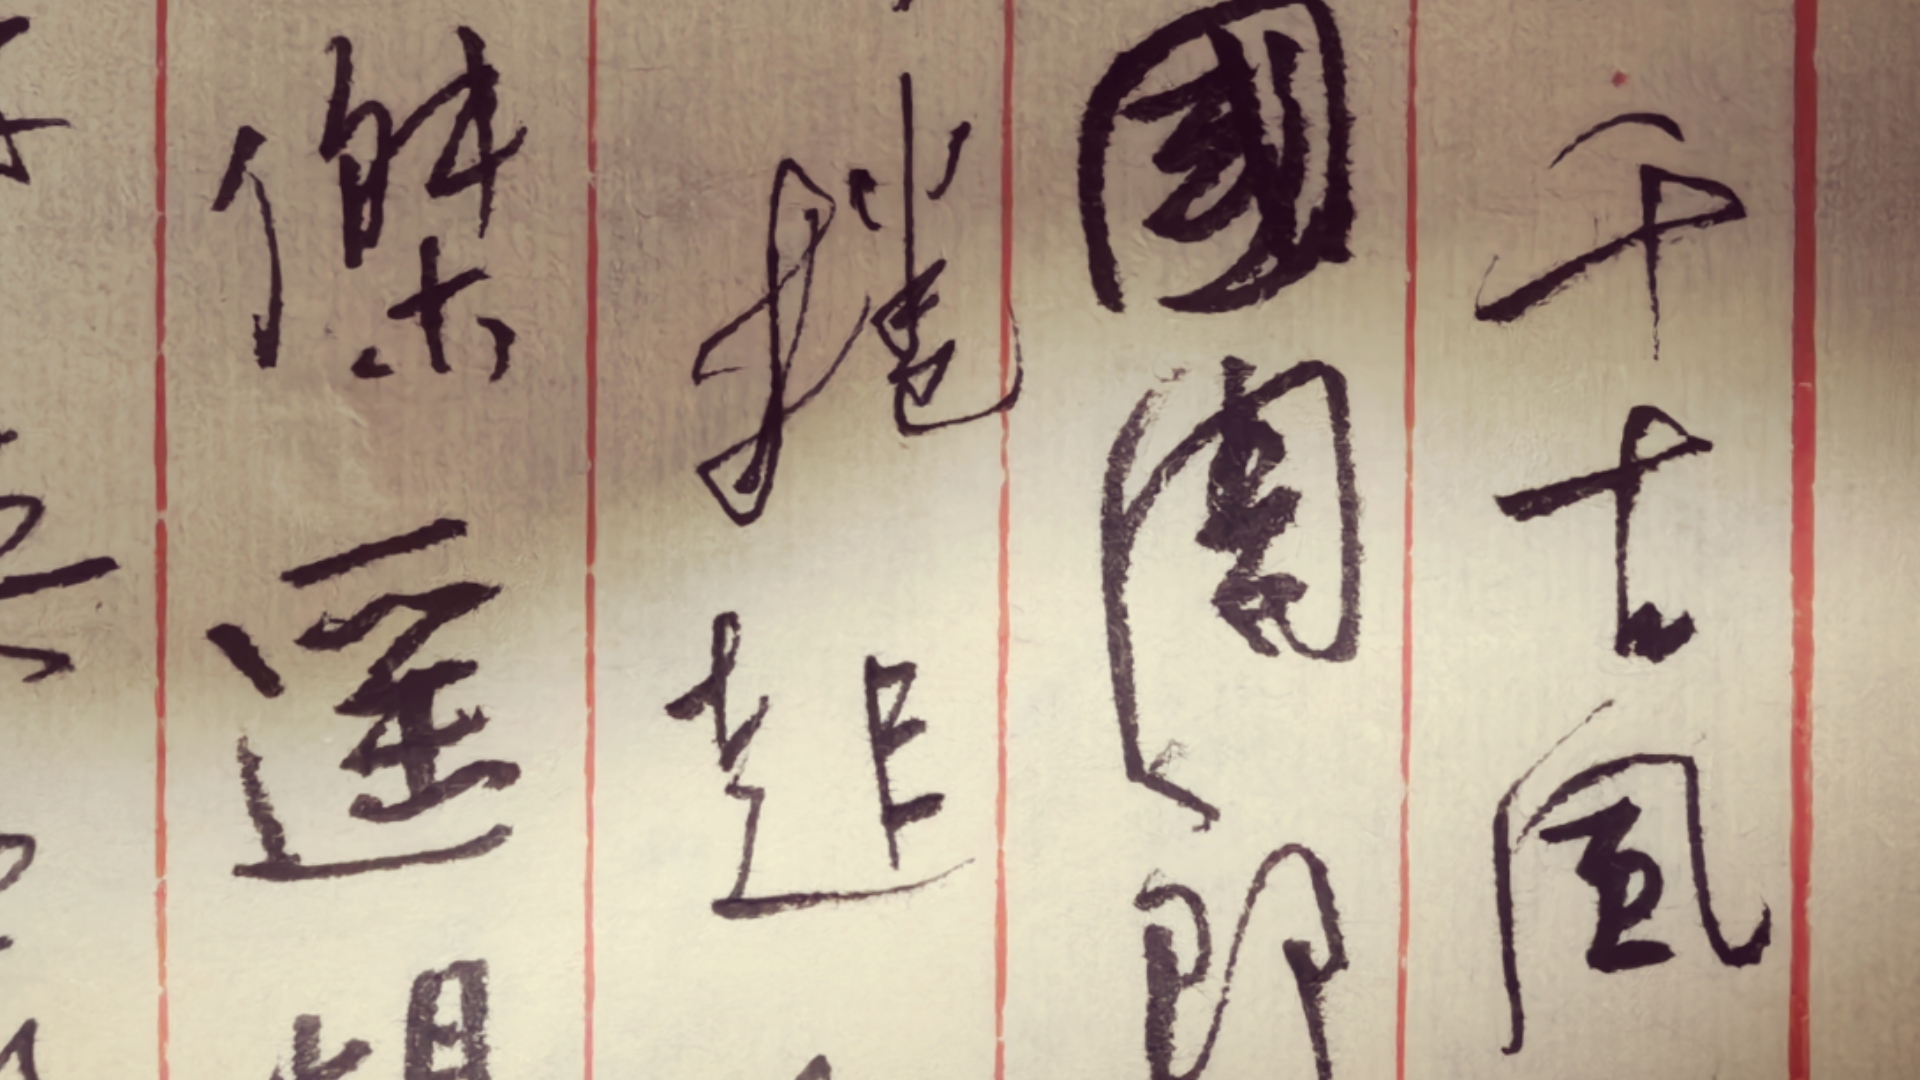 千古風
國周郎
捲起
傑遥